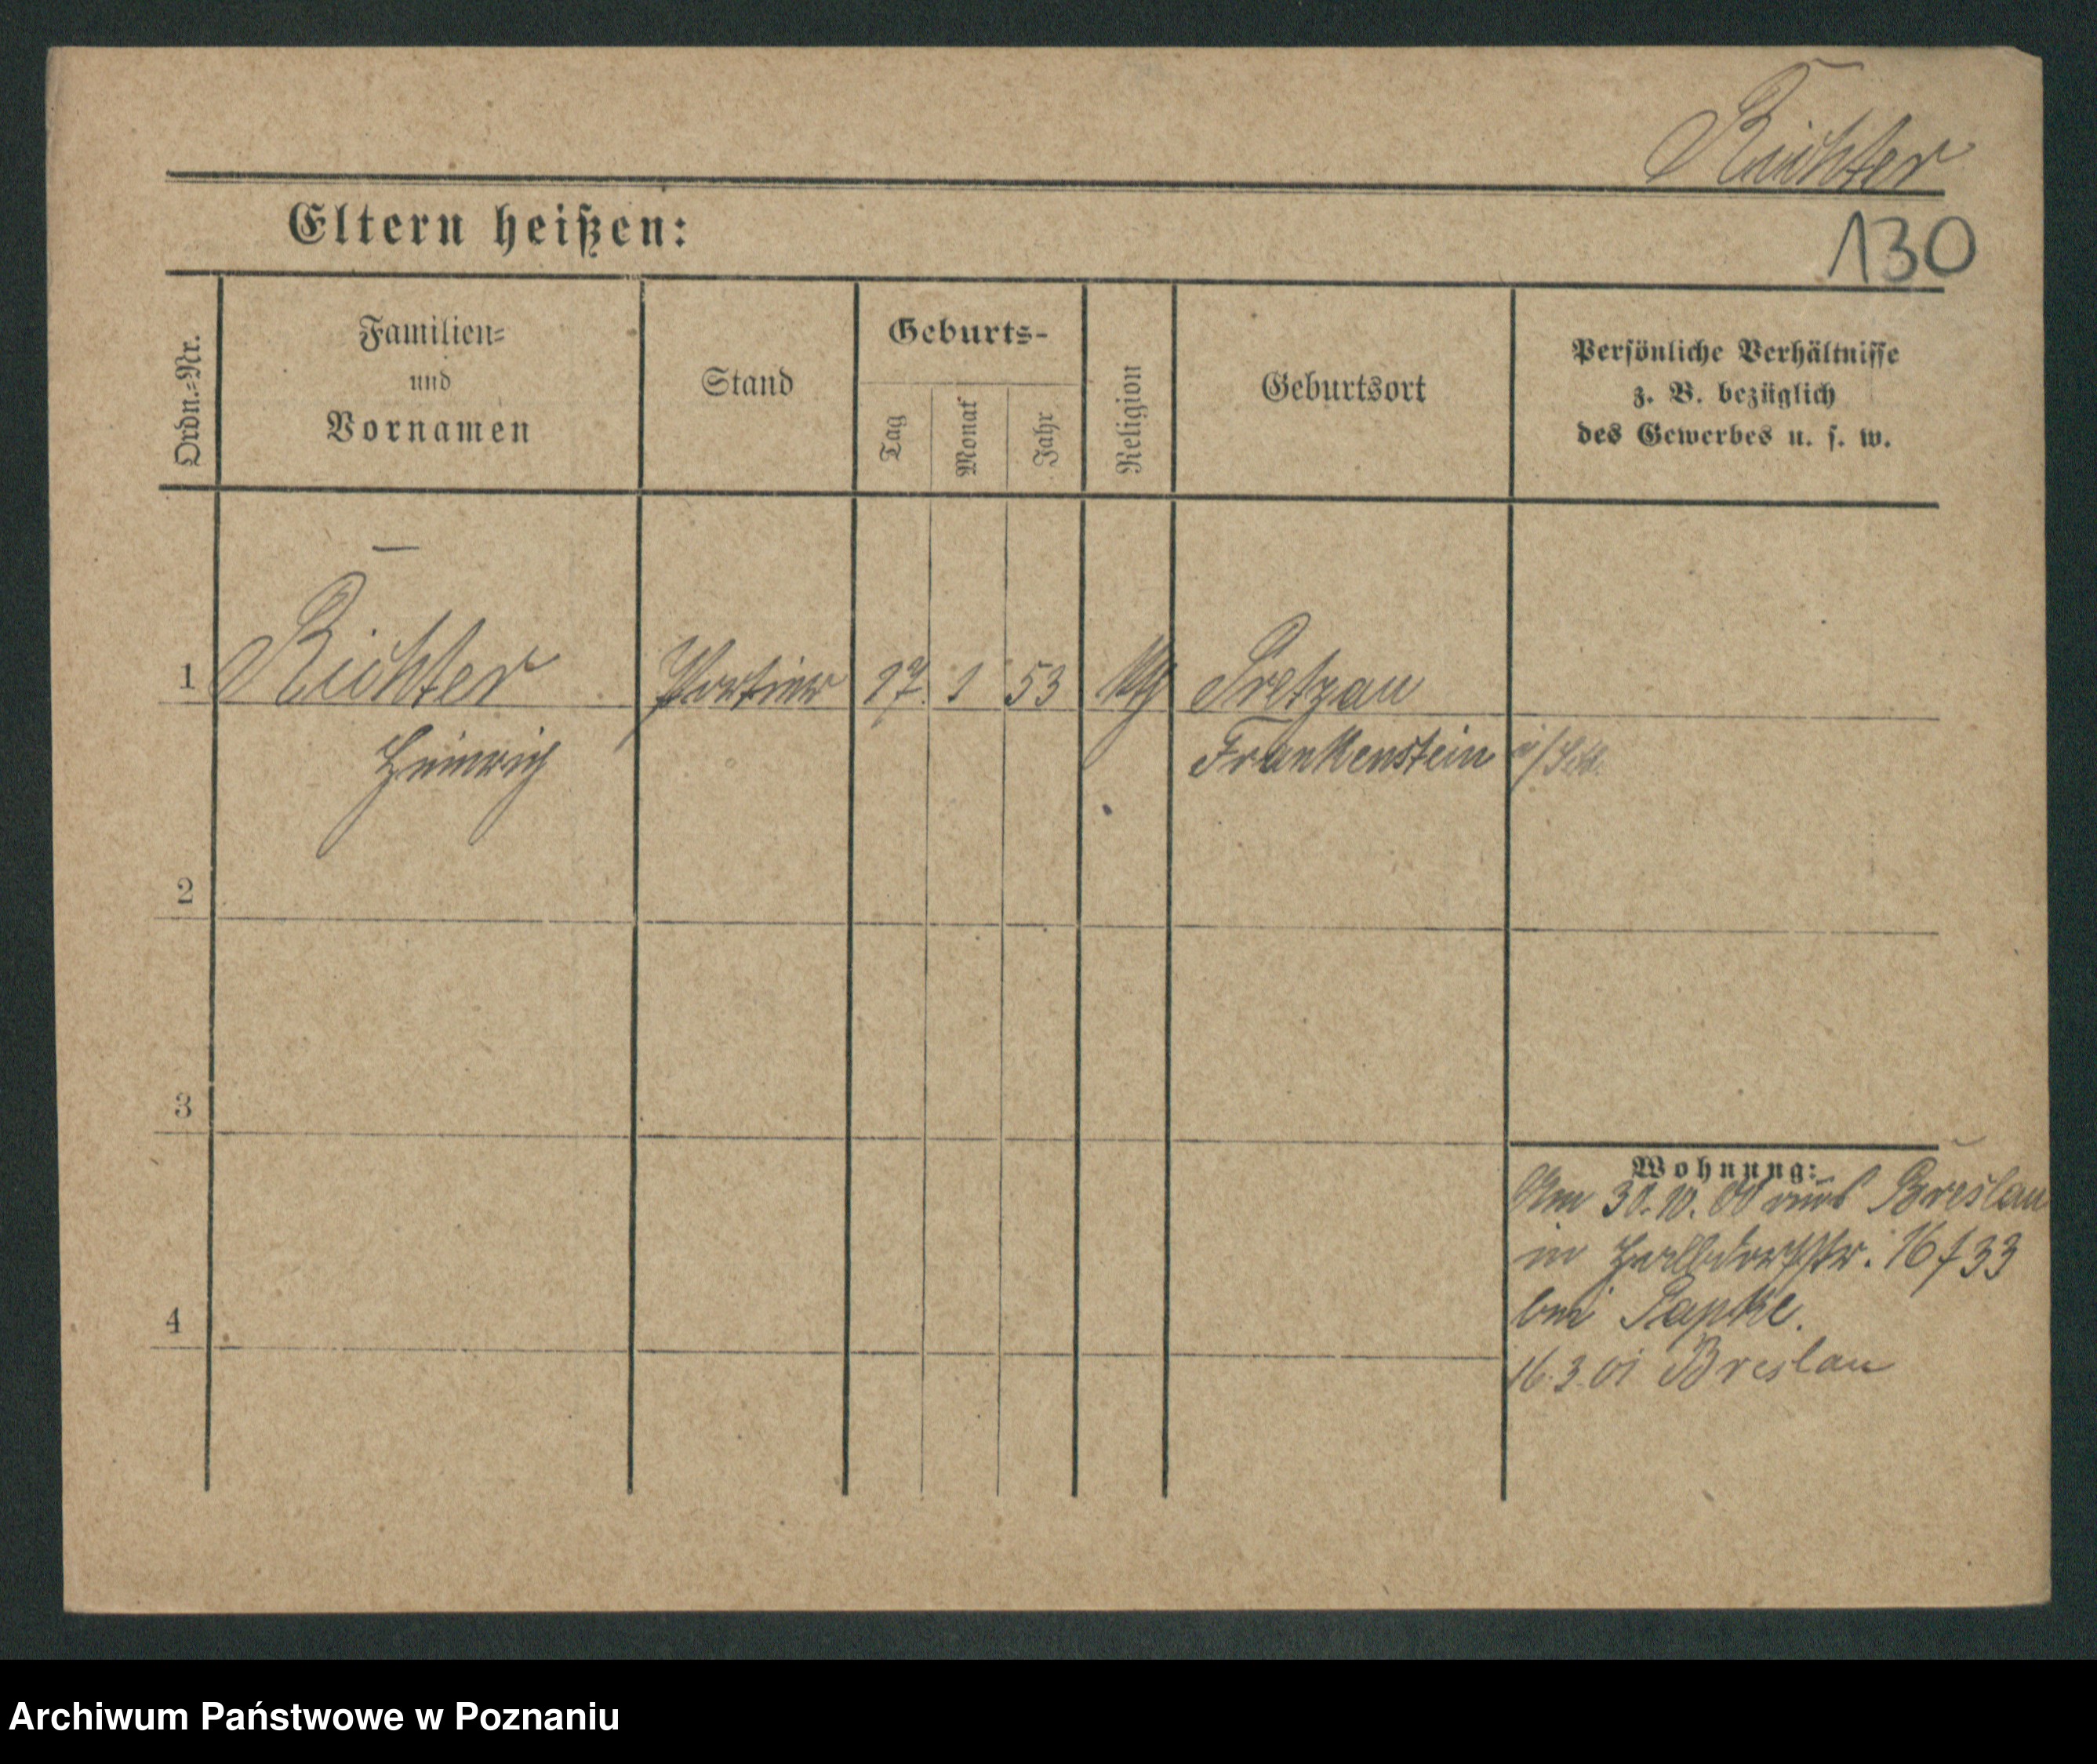 Richter
Eltern heißen:
130
Ordn.=Nr.
Familien=
und
Vornamen
Stand
Geburts-
Tag
Monat
Jahr
Religion
Geburtsort
Persönliche Verhältnisse
z. B. bezüglich
des Gewerbes u. s. w.
1
Richter
Portier
17.
1
53
Pretzau
Heinrich
Frankenstein i/Schl.
2
3
4
Wohnung:
Am 30.10.00 aus Breslau
in 16/33
bei Papke.
16.3.01 Breslau
Archiwum Państwowe w Poznaniu